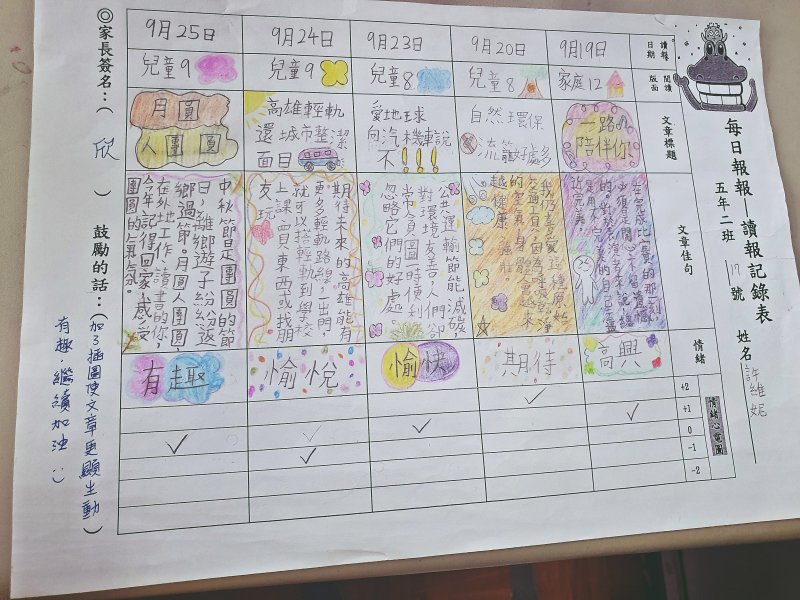 每日報報－讀報記錄表
五年二班 17號 姓名 許維妮
讀報日期
9月19日
9月20日
9月23日
9月24日
9月25日
閱讀版面
家庭12
兒童8
兒童8
兒童9
兒童9
文章標題
一路陪伴你
自然環保
流籠好處多
愛地球
向汽機車說
不!!!
高雄輕軌
還城市整潔
面目
月圓
人團圓
文章佳句
公共運輸節能減碳,
對環境友善,人們卻
常常貪圖一時便利
忽略它們的好處
期待未來的高雄能有
更多輕軌路線,一出門,
就可以搭輕軌到學校
上課、買東西或找朋
友玩。
中秋節是團圓的節
日,離鄉遊子紛紛返
鄉過節。月圓人團圓,
在外地工作、讀書的你,
今年記得回家感受
團圓的氣氛。
情緒
高興
期待
愉快
愉悅
有趣
情緒心電圖
+2
+1
0
-1
-2
◎家長簽名:( 欣 ) 鼓勵的話:(加了插圖使文章更顯生動)
有趣,繼續加油:)